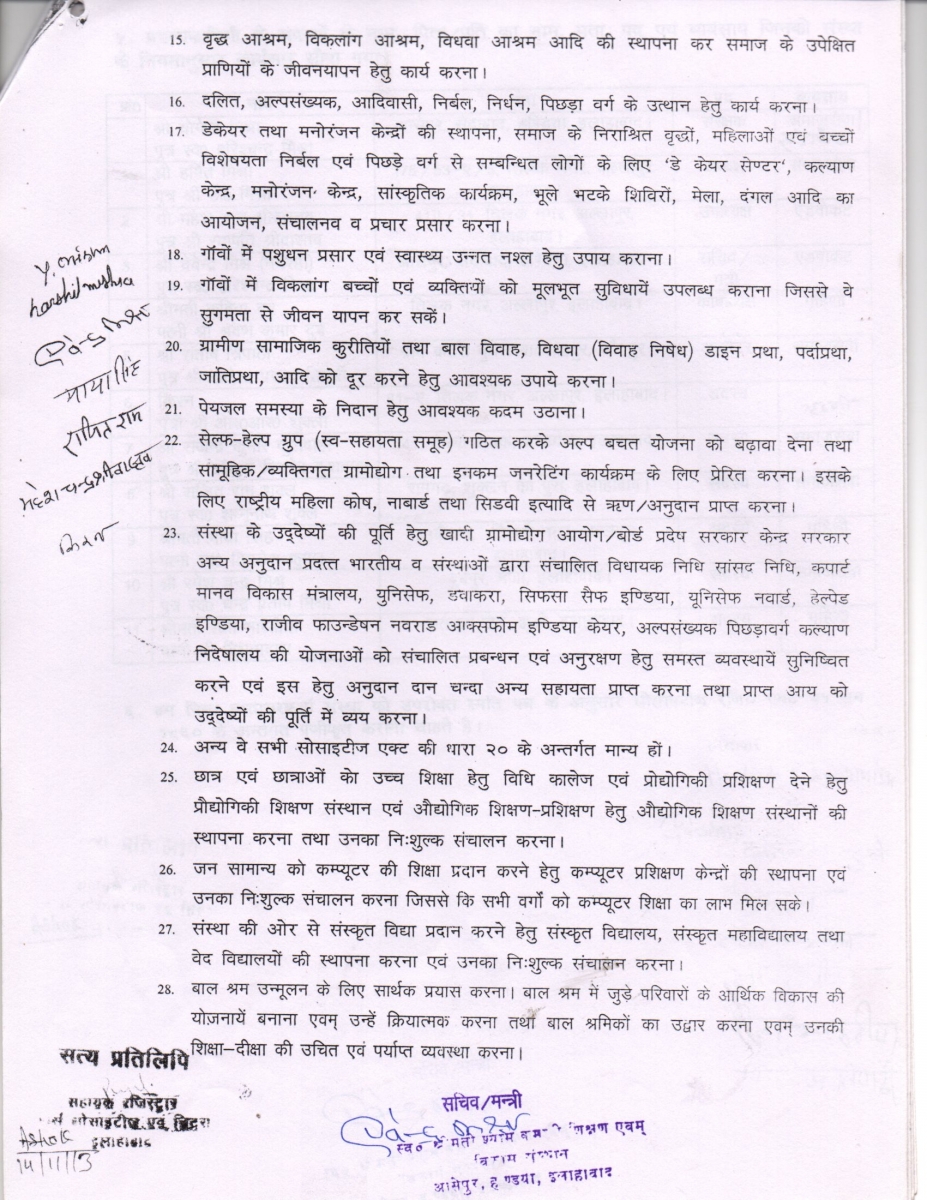 15. वृद्ध आश्रम, विकलांग आश्रम, विधवा आश्रम आदि की स्थापना कर समाज के उपेक्षित
प्राणियों के जीवनयापन हेतु कार्य करना।
16. दलित, अल्पसंख्यक, आदिवासी, निर्बल, निर्धन, पिछड़ा वर्ग के उत्थान हेतु कार्य करना।
17. डेकेयर तथा मनोरंजन केन्द्रों की स्थापना, समाज के निराश्रित वृद्धों, महिलाओं एवं बच्चों
विशेषयता निर्बल एवं पिछड़े वर्ग से सम्बन्धित लोगों के लिए 'डे केयर सेण्टर', कल्याण
केन्द्र, मनोरंजन केन्द्र, सांस्कृतिक कार्यक्रम, भूले भटके शिविरों, मेला, दंगल आदि का
आयोजन, संचालनव व प्रचार प्रसार करना।
18. गॉवों में पशुधन प्रसार एवं स्वास्थ्य उन्नत नश्ल हेतु उपाय कराना।
19. गॉवों में विकलांग बच्चों एवं व्यक्तियों को मूलभूत सुविधायें उपलब्ध कराना जिससे वे
सुगमता से जीवन यापन कर सकें।
20. ग्रामीण सामाजिक कुरीतियों तथा बाल विवाह, विधवा (विवाह निषेध) डाइन प्रथा, पर्दाप्रथा,
जातिप्रथा, आदि को दूर करने हेतु आवश्यक उपाये करना।
21. पेयजल समस्या के निदान हेतु आवश्यक कदम उठाना।
22. सेल्फ-हेल्प ग्रुप (स्व-सहायता समूह) गठित करके अल्प बचत योजना को बढ़ावा देना तथा
सामूहिक/व्यक्तिगत ग्रामोद्योग तथा इनकम जनरेटिंग कार्यकम के लिए प्रेरित करना। इसके
लिए राष्ट्रीय महिला कोष, नाबार्ड तथा सिडवी इत्यादि से ऋण/अनुदान प्राप्त करना।
23. संस्था के उद्देष्यों की पूर्ति हेतु खादी ग्रामोद्योग आयोग/बोर्ड प्रदेष सरकार केन्द्र सरकार
अन्य अनुदान प्रदत्त भारतीय व संस्थाओं द्वारा संचालित विधायक निधि सांसद निधि, कपार्ट
मानव विकास मंत्रालय, युनिसेफ, डवाकरा, सिफसा सैफ इण्डिया, यूनिसेफ नवार्ड, हेल्पेड
इण्डिया, राजीव फाउन्डेषन नवराड आक्सफोम इण्डिया केयर, अल्पसंख्यक पिछड़ावर्ग कल्याण
निदेषालय की योजनाओं को संचालित प्रबन्धन एवं अनुरक्षण हेतु समस्त व्यवस्थायें सुनिष्चित
करने एवं इस हेतु अनुदान दान चन्दा अन्य सहायता प्राप्त करना तथा प्राप्त आय को
उद्देष्यों की पूर्ति में व्यय करना।
24. अन्य वे सभी सोसाइटीज एक्ट की धारा २० के अन्तर्गत मान्य हों।
25. छात्र एवं छात्राओं केा उच्च शिक्षा हेतु विधि कालेज एवं प्रोद्योगिकी प्रशिक्षण देने हेतु
प्रौद्योगिकी शिक्षण संस्थान एवं औद्योगिक शिक्षण-प्रशिक्षण हेतु औद्योगिक शिक्षण संस्थानों की
स्थापना करना तथा उनका निःशुल्क संचालन करना।
26. जन सामान्य को कम्प्यूटर की शिक्षा प्रदान करने हेतु कम्प्यूटर प्रशिक्षण केन्द्रों की स्थापना एवं
उनका निःशुल्क संचालन करना जिससे कि सभी वर्गो को कम्प्यूटर शिक्षा का लाभ मिल सके।
27. संस्था की ओर से संस्कृत विद्या प्रदान करने हेतु संस्कृत विद्यालय, संस्कृत महाविद्यालय तथा
वेद विद्यालयों की स्थापना करना एवं उनका निःशुल्क संचालन करना।
28. बाल श्रम उन्मूलन के लिए सार्थक प्रयास करना। बाल श्रम में जुड़े परिवारों के आर्थिक विकास की
योजनायें बनाना एवम् उन्हें क्रियात्मक करना तथा बाल श्रमिकों का उद्वार करना एवम् उनकी
शिक्षा-दीक्षा की उचित एवं पर्याप्त व्यवस्था करना।
Y. mishra
harshil mishra
माया सिंह
राजित राम
महेश चन्द्र श्रीवास्तव
किरन
सत्य प्रतिलिपि
सहायक रजिस्ट्रार
सोसाइटीज एवं चिट्स
इलाहाबाद
Ashok
14/11/13
सचिव/मन्त्री
स्व० श्रीमती श्याम शिक्षण एवम्
संस्थान
हण्डिया, इलाहाबाद